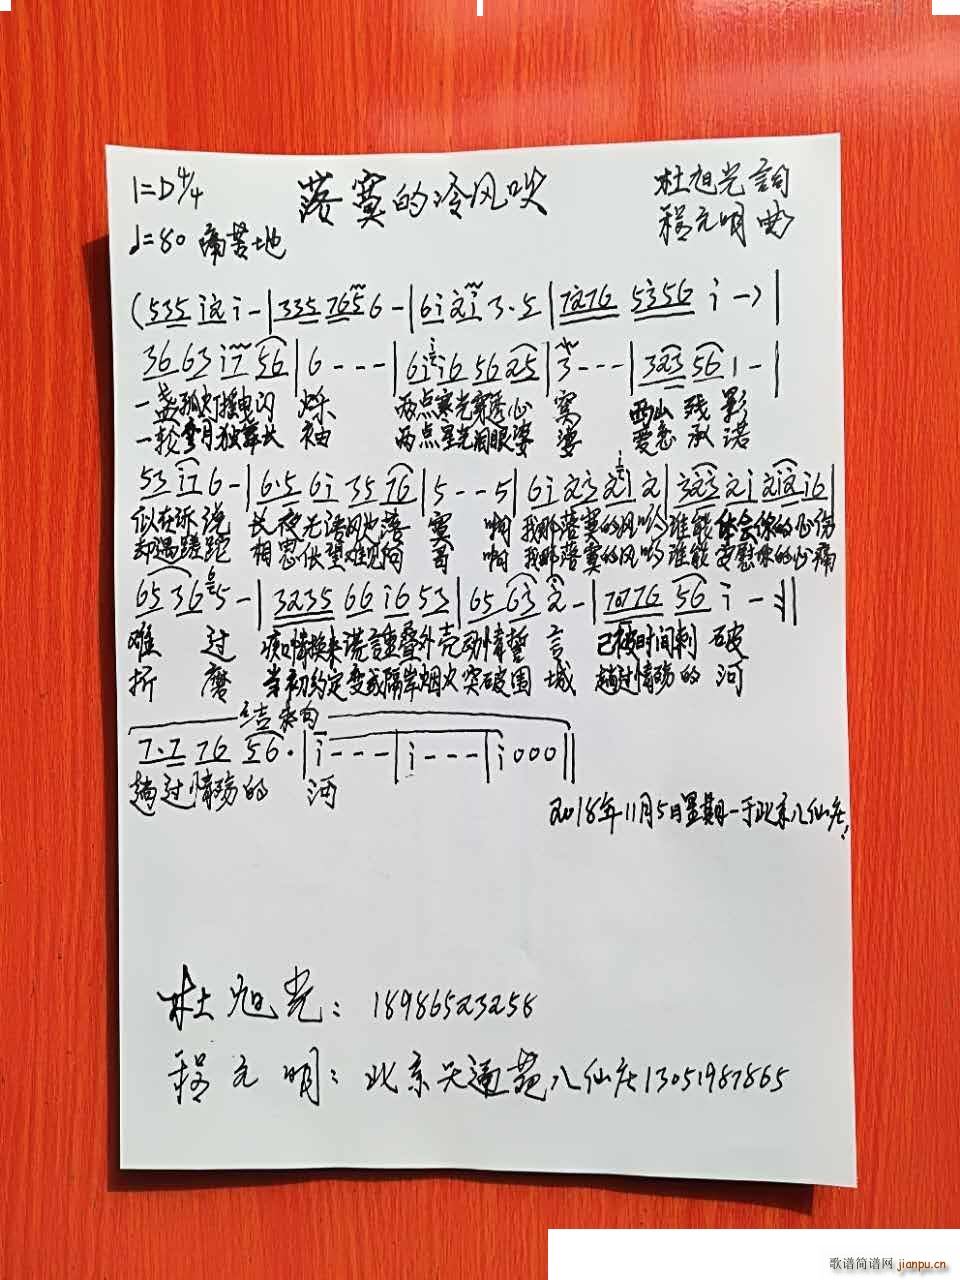 1=D 4/4 落寞的冷风吹 杜旭光詞
♩=80 痛苦地 程元明曲
(535 i2i i - | 335 765 6 - | 6i 2i 3·5 | 7276 5356 i - ) |
36 63 i7 56 | 6 - - - | 6i i6 56 25 | 3 - - - | 323 56 1 - |
一盏孤灯摇曳闪 烁 两点寒光穿透心 窝 西山残影
一轮 月独舞长 袖 两点星光泪眼婆 娑 爱意承诺
53 i7 6 - | 6·5 6i 35 76 | 5 - - 5 | 6i 23 2i 2 | 323 2i 2i2 i6 |
似在诉说 长夜无语风吹落 寞 啊 我那落寞的风吟谁能体会你的心伤
却遇蹉跎 相思伏望难见向 啊 我那落寞的风吟谁能安慰你的心痛
65 36 5 - | 3235 66 i6 53 | 65 63 2 - | 7276 56 i - :||
难 过 痴情换来谎言重叠外壳 动情誓 言 已被时间刺 破
折 磨 当初约定变成隔岸烟火 突破围 城 趟过情殇的 河
结束句
7·7 76 56· | i - - - | i - - - | i 0 0 0 ||
趟过情殇的 河
2018年11月5日星期一于北京八仙庄!
杜旭光: 18986523258
程元明: 北京天通苑八仙庄13051987865
歌谱简谱网 jianpu.cn